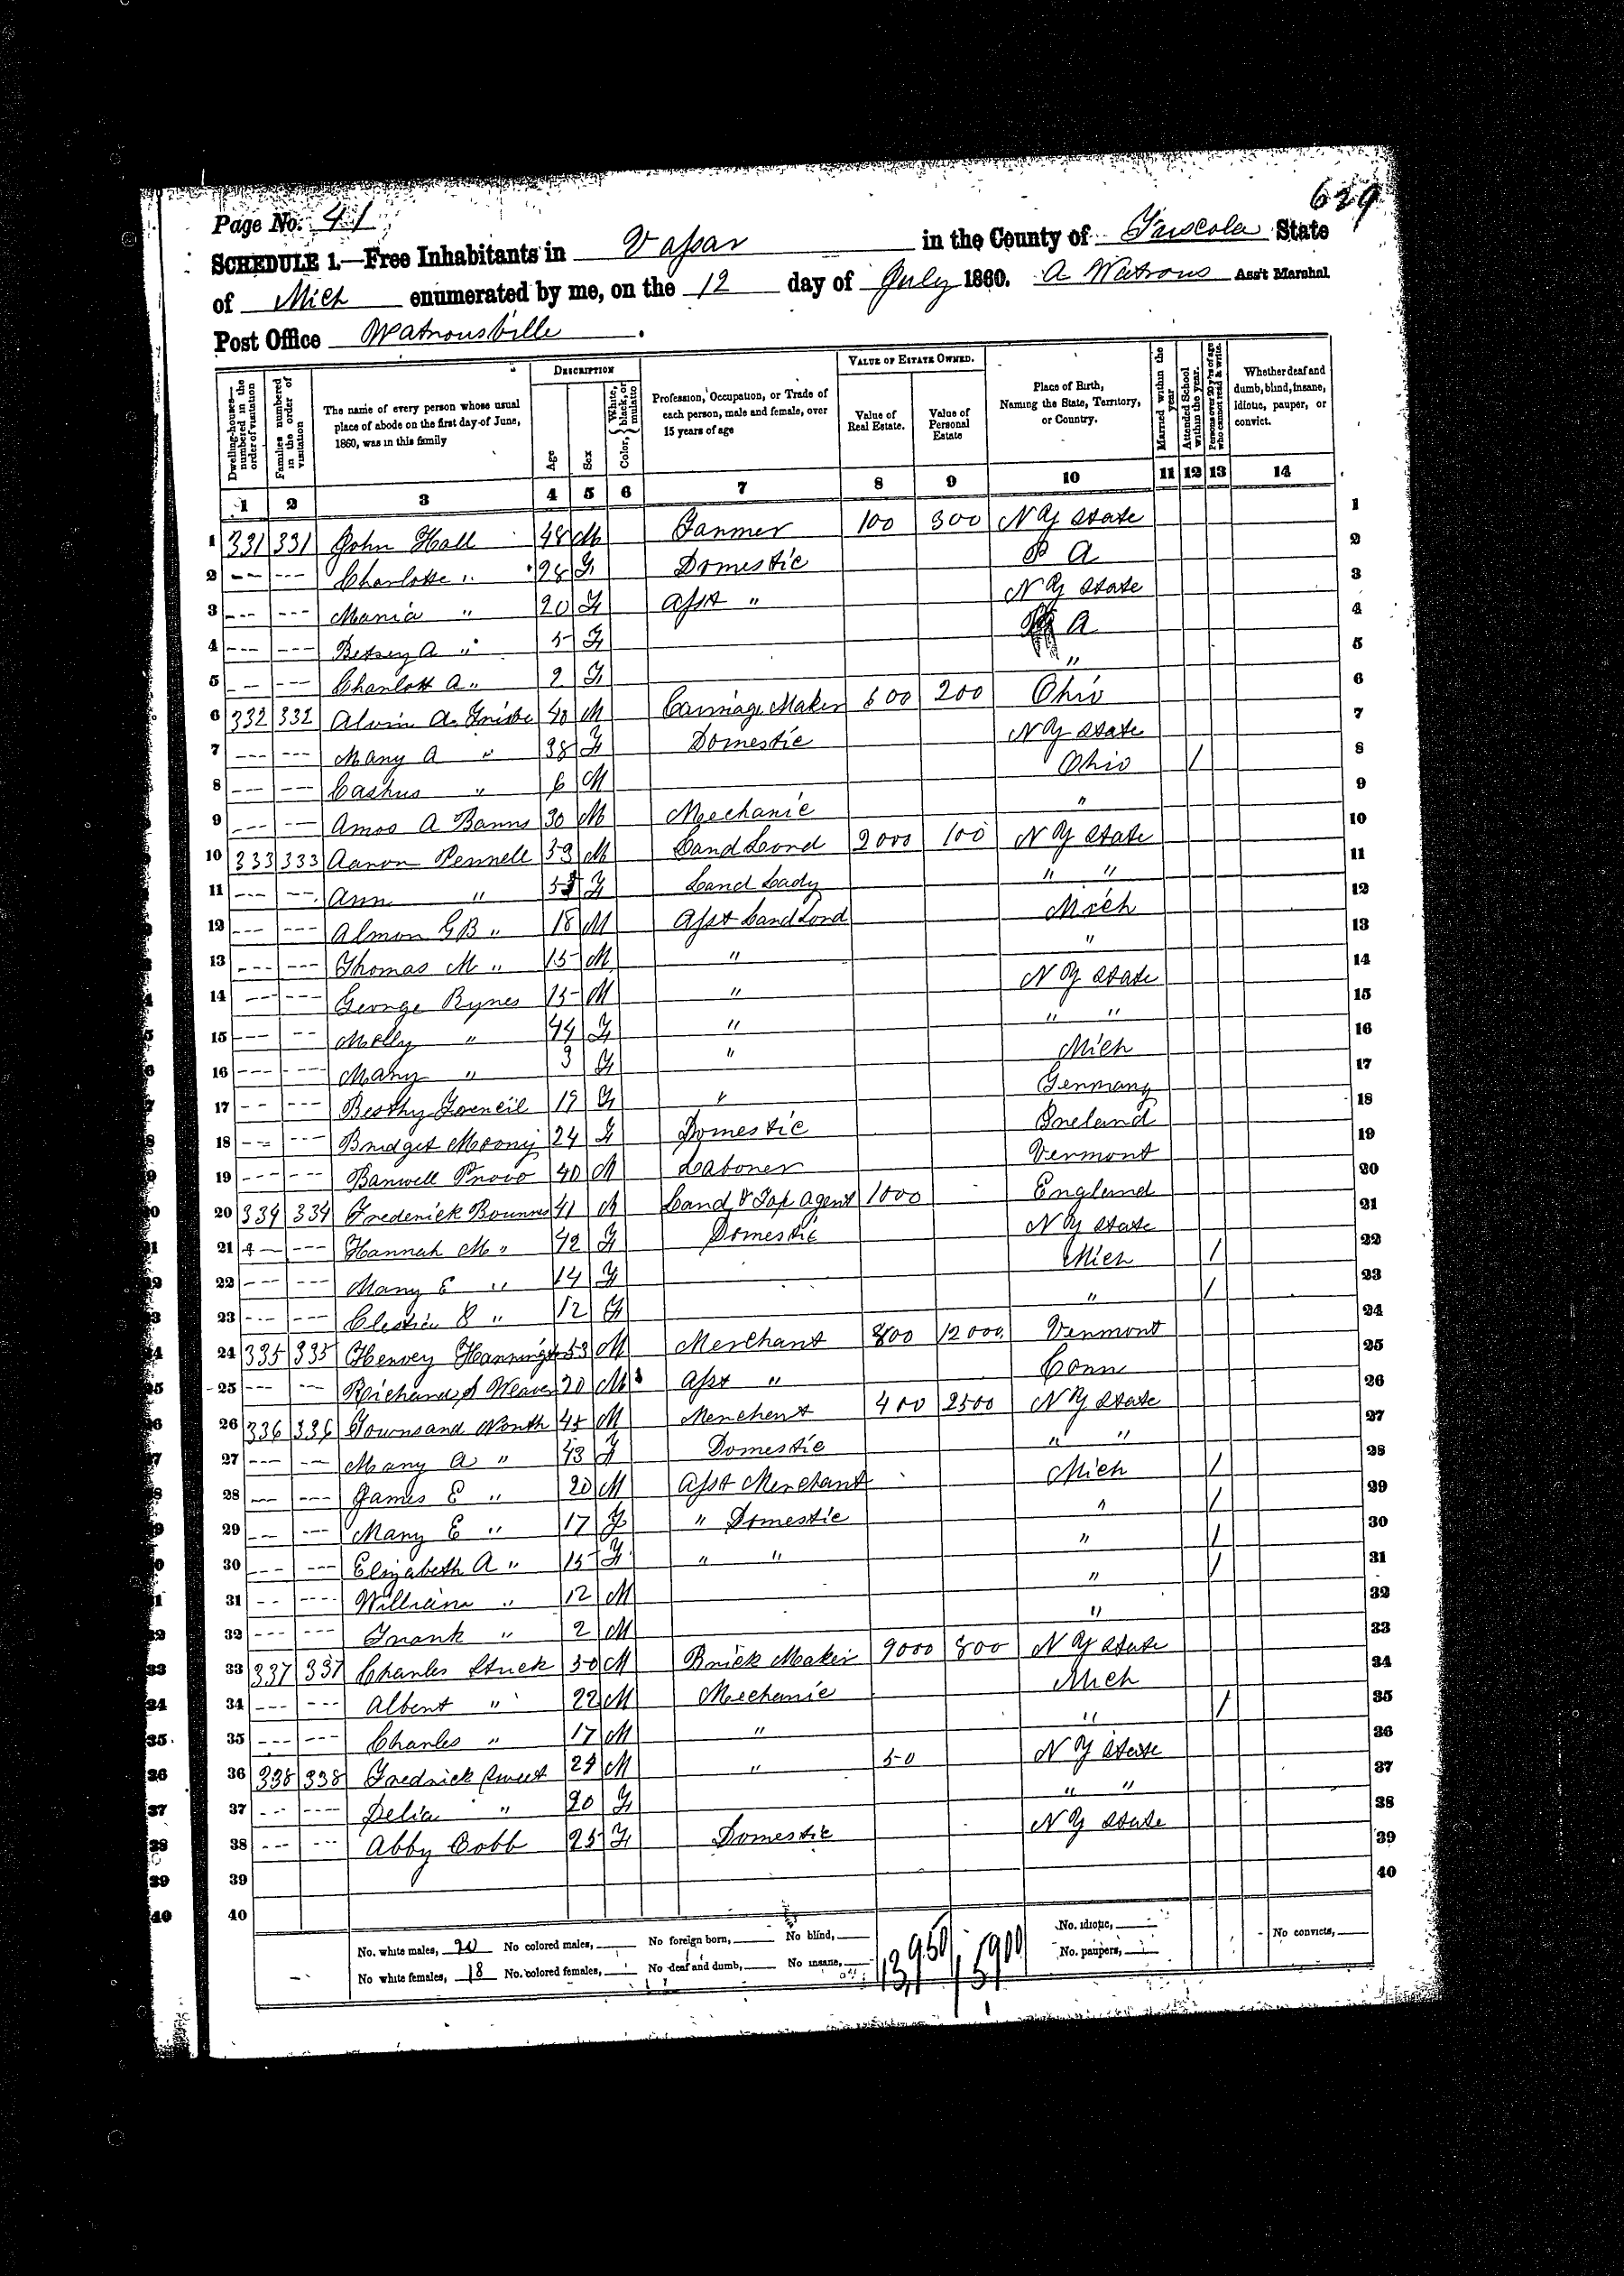 629
Page No. 41
SCHEDULE 1.—Free Inhabitants in Vassar in the County of Tuscola State
of Mich enumerated by me, on the 12 day of July 1860. A Watrous Ass't Marshal
Post Office Watrousville.
Dwelling-houses—numbered in the order of visitation
Families numbered in the order of visitation
The name of every person whose usual place of abode on the first day of June, 1860, was in this family
DESCRIPTION
Age
Sex
Color, { White, black, or mulatto
Profession, Occupation, or Trade of each person, male and female, over 15 years of age
VALUE OF ESTATE OWNED.
Value of Real Estate.
Value of Personal Estate
Place of Birth, Naming the State, Territory, or Country.
Married within the year
Attended School within the year.
Persons over 20 y'rs of age who cannot read & write.
Whether deaf and dumb, blind, insane, idiotic, pauper, or convict.
1 2 3 4 5 6 7 8 9 10 11 12 13 14
1 331 331 John Hall 48 M Farmer 100 300 N Y State 1
2 --- --- Charlotte " 28 F Domestic P A 2
3 --- --- Maria " 20 F Asst " N Y State 3
4 --- --- Betsey A " 5 F A 4
5 --- --- Charlott A " 2 F " 5
6 332 332 Alvin A 40 M Carriage Maker 600 200 Ohio 6
7 --- --- Mary A " 38 F Domestic N Y State 7
8 --- --- Cashus " 6 M Ohio / 8
9 --- --- Amos A Barns 30 M Mechanic " 9
10 333 333 Aaron Pennell 59 M Land Lord 2000 100 N Y State 10
11 --- --- Ann " F Land Lady " " 11
12 --- --- Almon G B " 18 M Asst Land Lord Mich 12
13 --- --- Thomas M " 15 M " " 13
14 --- --- George Rynes 15 M " N Y State 14
15 --- --- Melly " 44 F " " " 15
16 --- --- Mary " 3 F " Mich 16
17 --- --- 19 F " Germany 17
18 --- --- Bridget 24 F Domestic Ireland 18
19 --- --- Barwell Provo 40 M Laborer Vermont 19
20 334 334 Frederick Bourns 41 M Land & Tax Agent 1000 England 20
21 --- --- Hannah M " 42 F Domestic N Y State 21
22 --- --- Mary E " 14 F Mich / 22
23 --- --- " 12 F " / 23
24 335 335 Harvey 53 M Merchant 800 12000 Vermont 24
25 --- --- Richard Weaver 20 M Asst " Conn 25
26 336 336 Townsand North 45 M Merchent 400 2500 N Y State 26
27 --- --- Mary A " 43 F Domestic " " 27
28 --- --- James E " 20 M Asst Merchant Mich / 28
29 --- --- Mary E " 17 F " Domestic " / 29
30 --- --- Elizabeth A " 15 F " " " / 30
31 --- --- William " 12 M " / 31
32 --- --- Frank " 2 M " 32
33 337 337 Charles Stuck 50 M Brick Maker 9000 800 N Y State 33
34 --- --- Albert " 22 M Mechanic Mich 34
35 --- --- Charles " 17 M " " / 35
36 338 338 Fredrick Sweet 24 M " 50 N Y State 36
37 --- --- Delia " 20 F " " 37
38 --- --- Abby Cobb 25 F Domestic N Y State 38
39 39
40 40
No. white males, 20 No colored males, No foreign born, No blind, 13,950 15,900 No. idiotic, No convicts,
No white females, 18 No. colored females, No deaf and dumb, No insane, No. paupers,